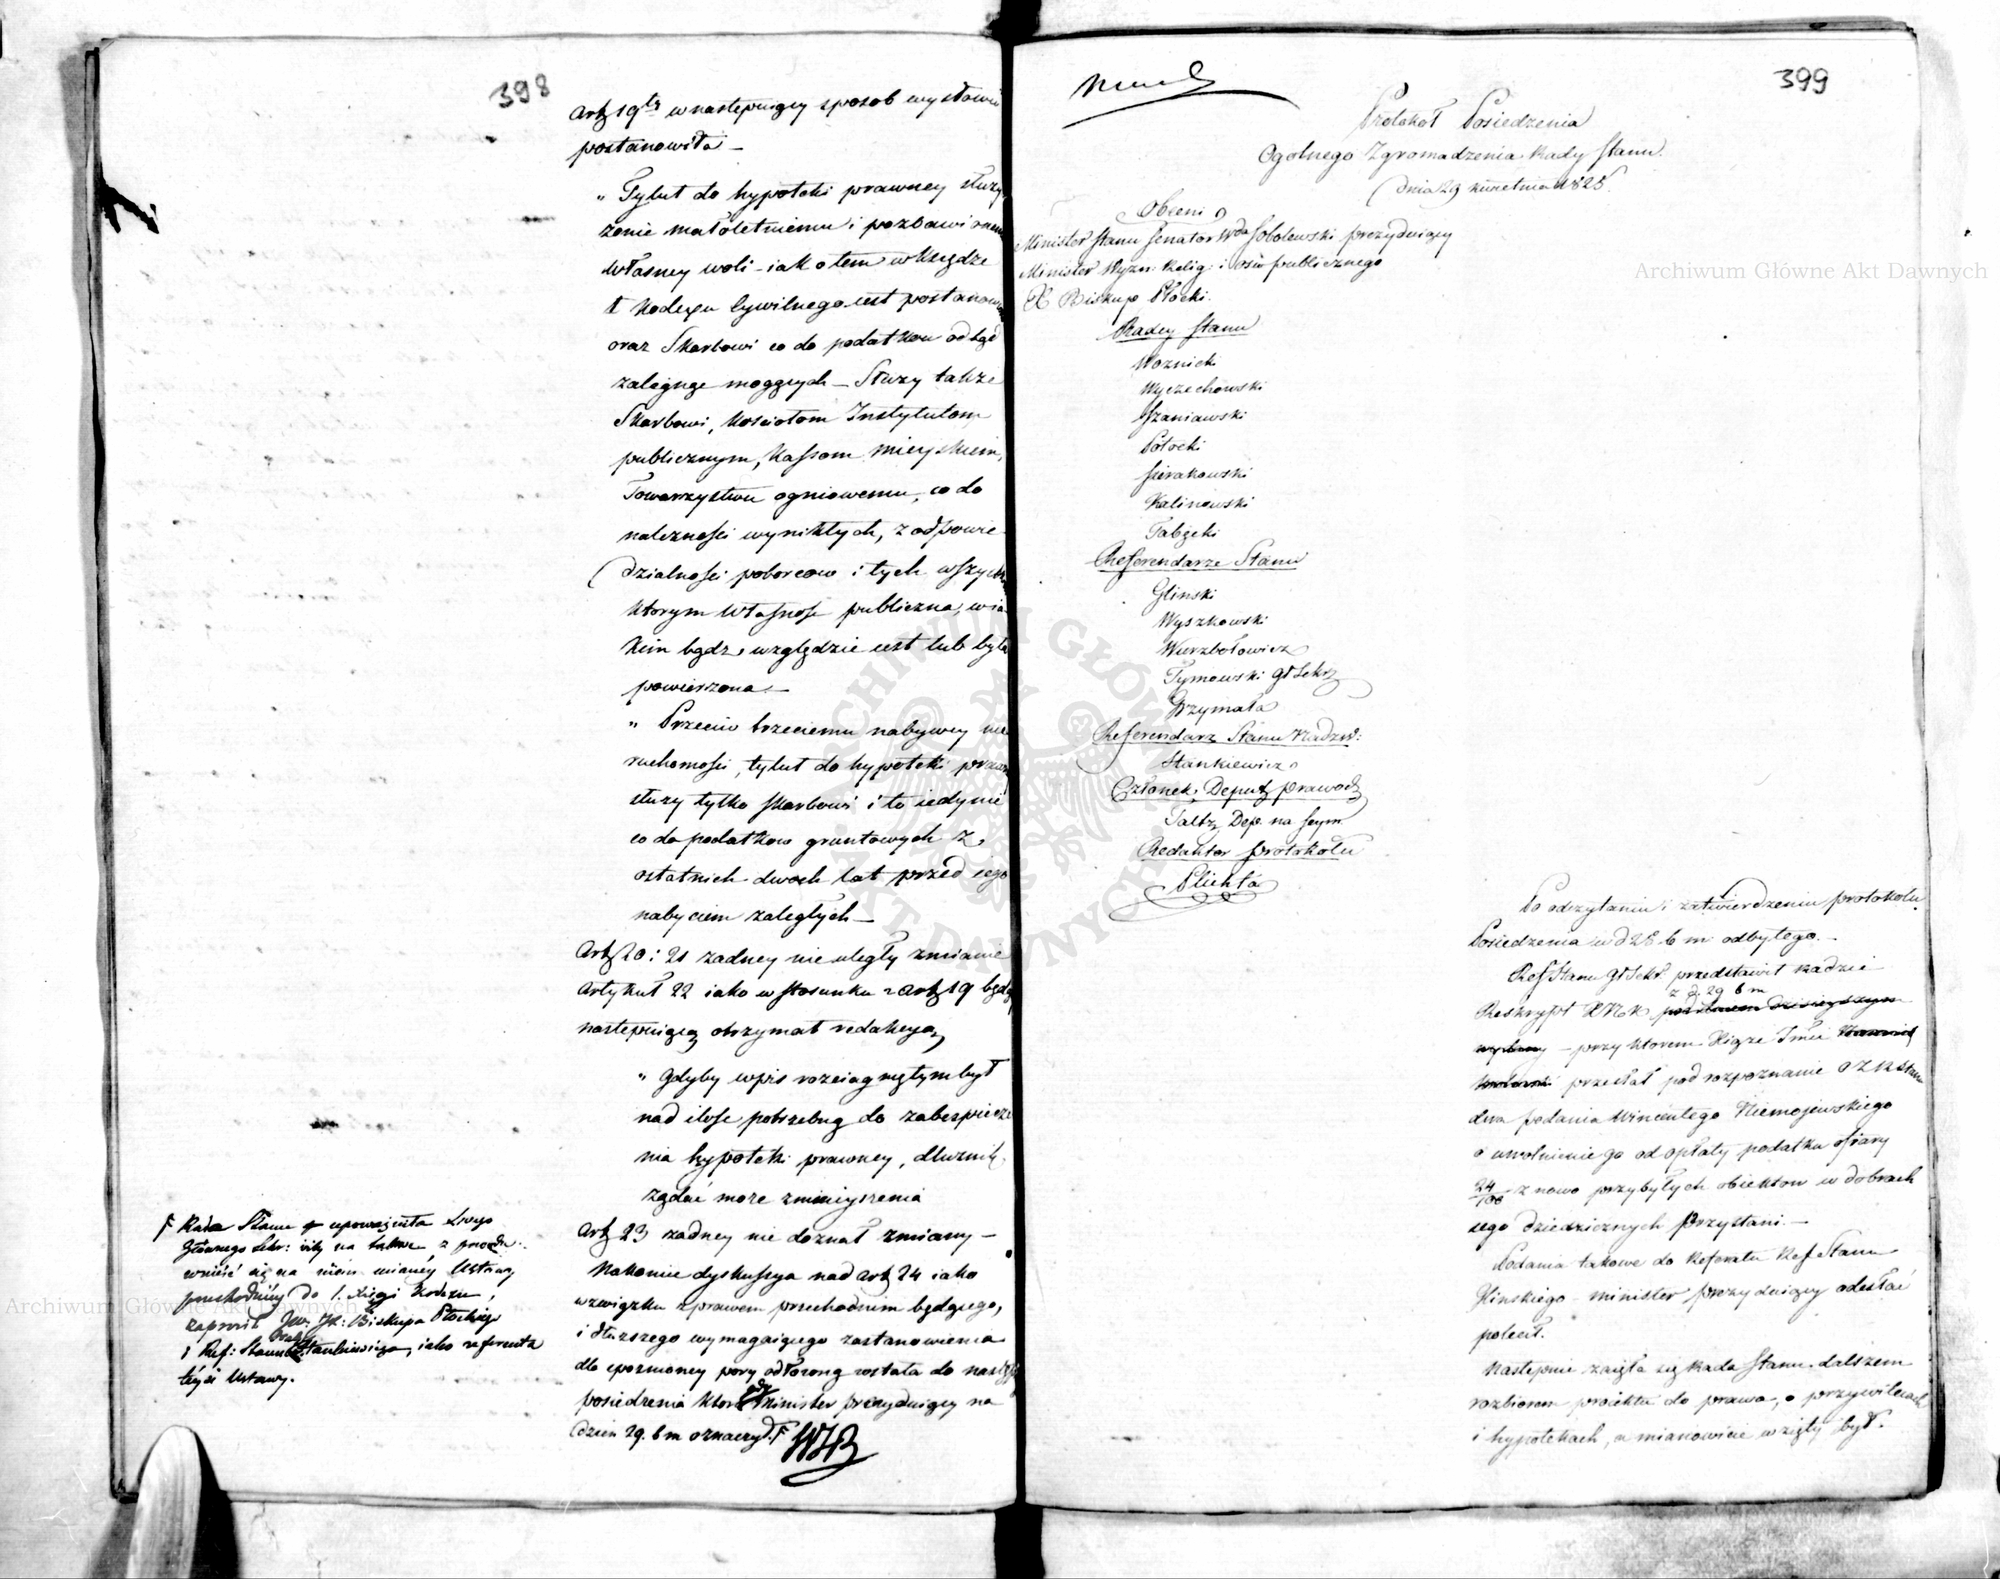 398
Art 19ty w następuiący sposob wysłowić
postanowiła –
„ Tytuł do hypoteki prawney służy
żonie małoletniemu i pozbawionemu
własney woli – iak o tem w Księdze
I Kodexu Cywilnego iest postanow
oraz Skarbowi co do podatkow odtąd
zalegnąc mogących – Służy także
Skarbowi, Kościołom Instytutom
publicznym, Kassom mieyskim,
Towarzystwu ogniowemu, co do
należności wynikłych, z odpowie
dzialności poborcow i tych wszyst
ktorym własność publiczna, w ia
kim bądź względzie iest lub była
powierzona –
„ Przeciw trzeciemu nabywcy nie
ruchomości, tytuł do hypoteki praw
służy tylko Skarbowi i to iedynie
co do podatkow gruntowych z
ostatnich dwoch lat przed iego
nabyciem zaległych –
Art 20 i 21 żadney nie uległy zmianie
Artykuł 22 iako w stosunku z Art 19 będą
następuiącą otrzymał redakcyą
„ Gdyby wpis rozciągniętym był
nad ilość potrzebną do zabezpiecze
nia hypoteki prawney, dłużnik
żądać może zmnieyszenia
Art 23 żadney nie doznał zmiany –
Nakoniec dyskussya nad Art 24 iako
w związku z prawem przechodnim będącego,
i dłuższego wymagaiącego zastanowienia
dla spoznioney pory odłożoną została do nastę
posiedzenia ktore Minister prezyduiący na
dzień 29. b m oznaczył. F
F Rada Stanu upoważniła swego
Głownego Sekr: iżby na takowe, z powodu
wnieść się na niem maiącey Ustawy
przechodniey do I. Xięgi Kodexu,
zaprosił JW. JX: Biskupa Płockiego
i Ref: Stanu Nadzw Stankiewicza, iako referenta
teyże Ustawy.
399
Protokoł Posiedzenia
Ogolnego Zgromadzenia Rady Stanu
dnia 29 kwietnia 1825.
Obecni
Minister Stanu Senator Wda Sobolewski prezyduiący
Minister Wyzn: Relig: i Ośw publicznego
X Biskup Płocki.
Radcy Stanu
Woznicki
Wyczechowski
Szaniawski
Potocki
Sierakowski
Kalinowski
Tabęcki
Referendarze Stanu
Gliński
Wyszkowski
Wierzbołowicz
Tymowski Gł Sekrz
Grzymała
Referendarz Stanu Nadzw:
Stankiewicz
Członek Deput prawod
Faltz Dep. na Seym
Redaktor protokołu
Plichta
Po odczytaniu i zatwierdzeniu protokołu
Posiedzenia w d 28 b m odbytego. –
Ref Stanu Gł Sekr. przedstawił Radzie
z d. 29 b m
Reskrypt XNK pod dniem dzisieyszym
wydany – przy ktorem Xiąże Jmci
przesłał pod rozpoznanie OZR Stanu
dwa podania Wincentego Niemojewskiego
o uwolnienie go od opłaty podatku ofiary
24/100 z nowo przybyłych obiektow w dobrach
iego dziedzicznych Przystani. –
Podania takowe do Referatu Ref Stanu
Glińskiego – minister prezyduiący odesłać
polecił.
Następnie zaięła się Rada Stanu dalszem
rozbiorem proiektu do prawa o przywileiach
i hypotekach, a mianowicie wzięty był.
Archiwum Główne Akt Dawnych
Archiwum Główne Akt Dawnych
ARCHIWUM GŁÓWNE AKT DAWNYCH